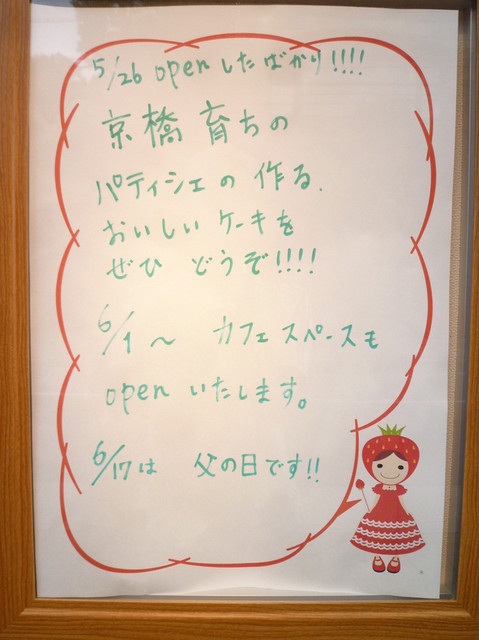 5/26 openしたばかり!!!!
京橋育ちの
パティシェの作る.
おいしいケーキを
ぜひ どうぞ!!!!
6/1～ カフェスペースも
openいたします。
6/17は 父の日です!!